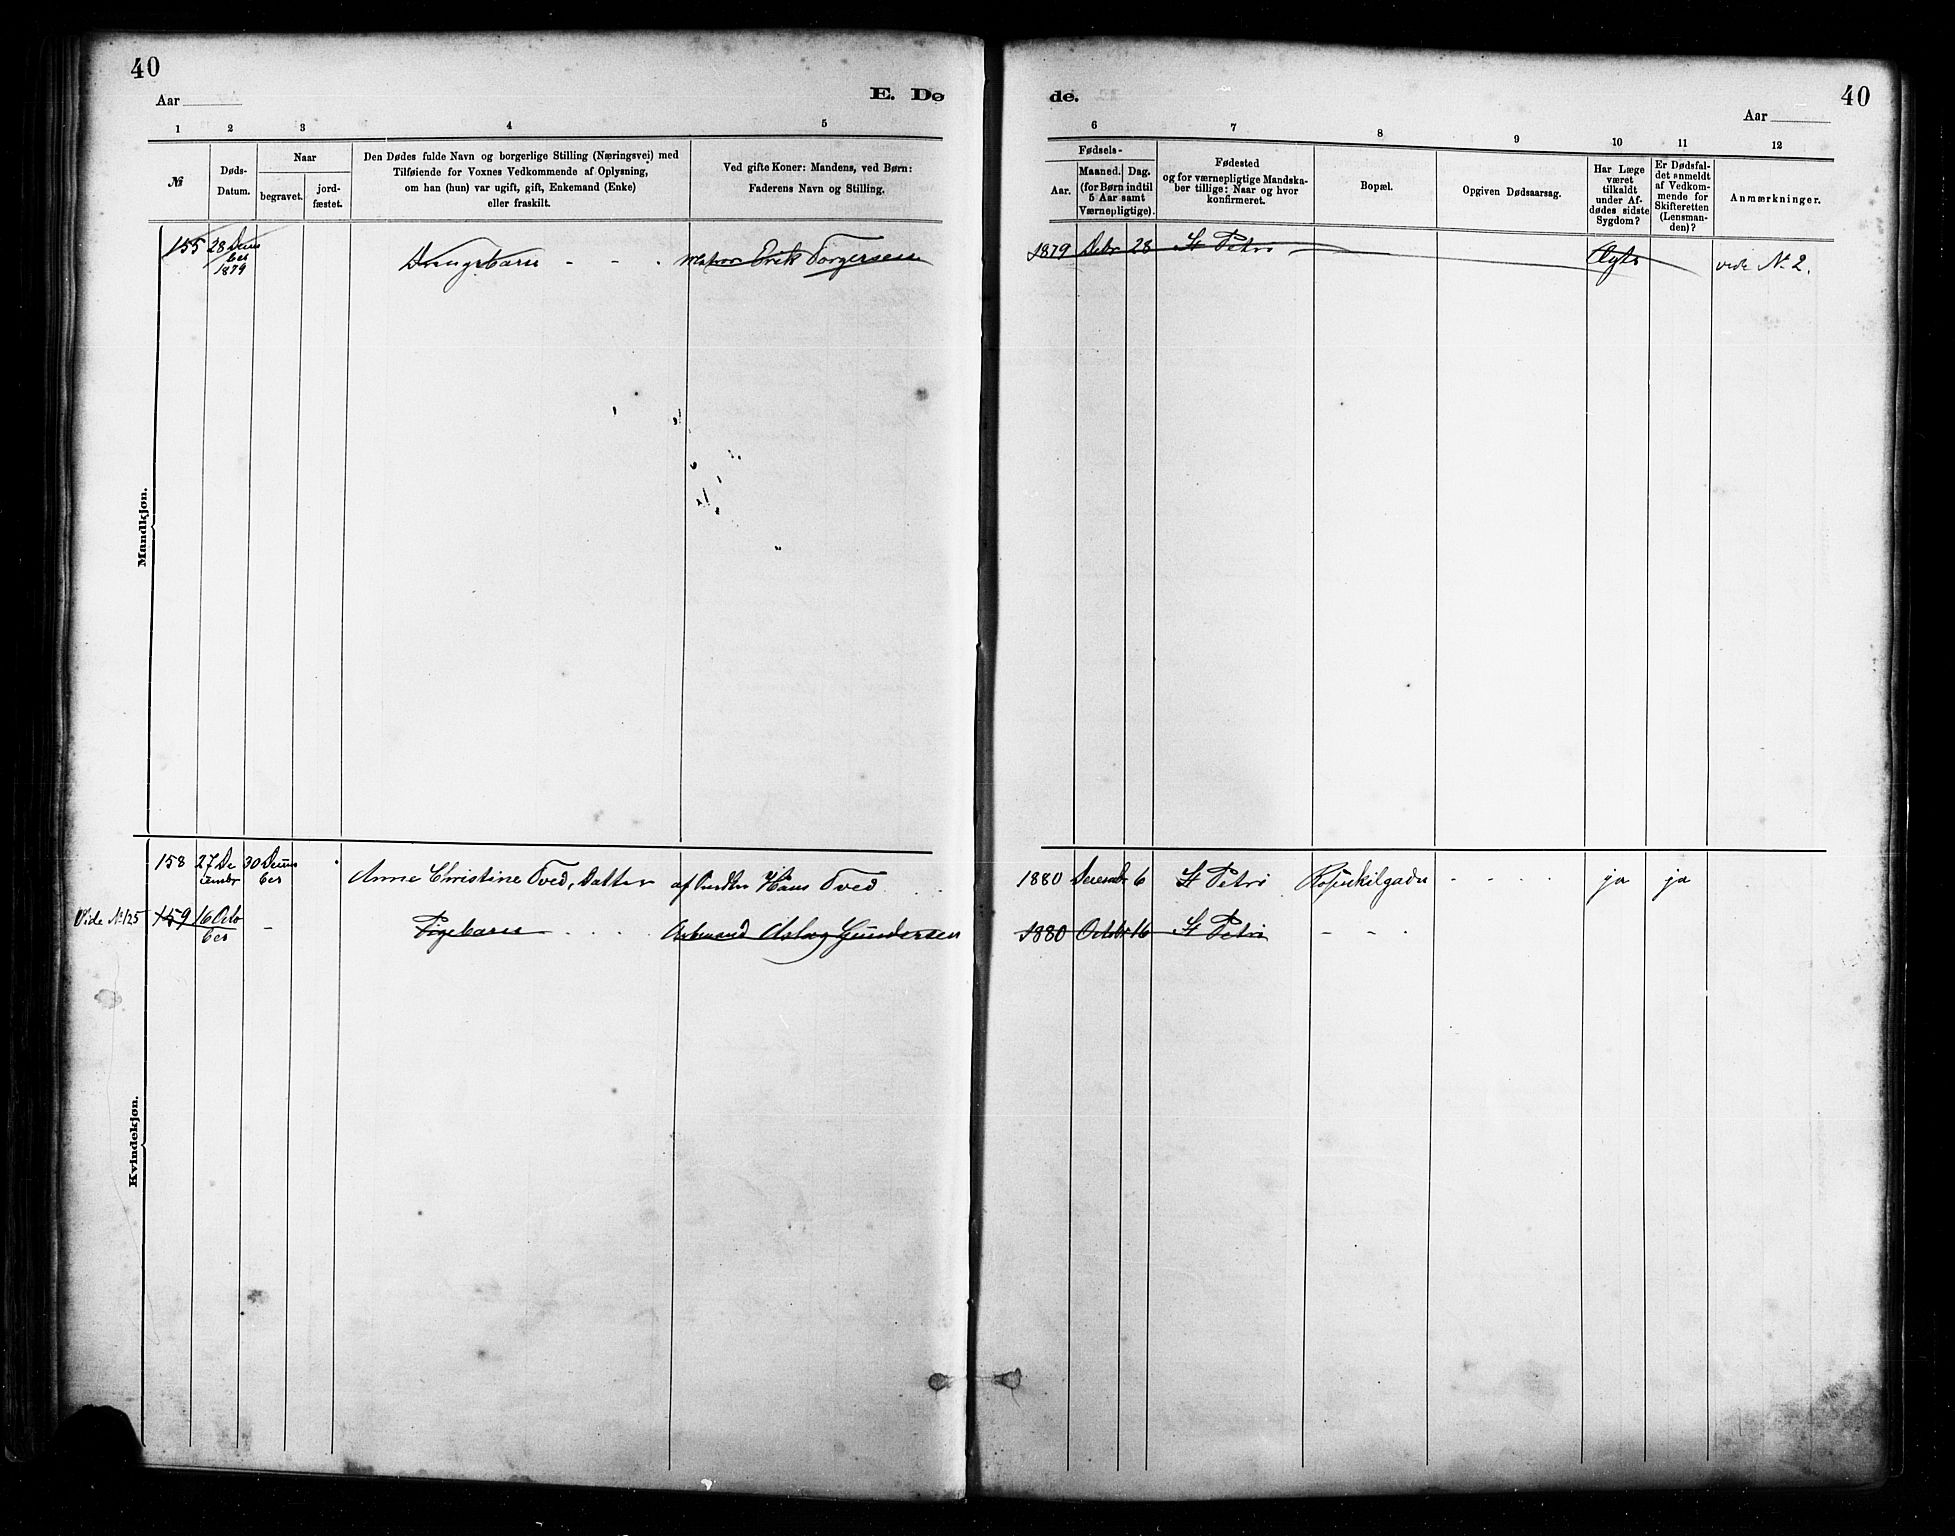 40
Aar
E. Dø
de.
Aar
40
1 2 3 4 5
6 7 8 9 10 11 12
№
Døds-
Datum.
Naar
begravet.
jord-
fæstet.
Den Dødes fulde Navn og borgerlige Stilling (Næringsvei) med
Tilføiende for Voxnes Vedkommende af Oplysning,
om han (hun) var ugift, gift, Enkemand (Enke)
eller fraskilt.
Ved gifte Koner: Mandens, ved Børn:
Faderens Navn og Stilling.
Fødsels-
Aar.
Maaned. Dag.
(for Børn indtil
5 Aar samt
Værnepligtige).
Fødested
og for værnepligtige Mandska-
ber tillige: Naar og hvor
konfirmeret.
Bopæl.
Opgiven Dødsaarsag.
Har Læge
været
tilkaldt
under Af-
dødes sidste
Sygdom?
Er Dødsfal-
det anmeldt
af Vedkom-
mende for
Skifteretten
(Lensman-
den)?
Anmærkninger.
Mandkjøn.
155 28 Decem
ber
1879
Drengebarn - - - Matros Erik Torgersen
1879 Debr 28 St Petri vide № 2.
Kvindekjøn.
158 27 De
cembr
30 Decem
ber
Anne Christine Tved, Datter af Hans Tved
1880 Decembr 6 St Petri ja ja
Vide № 125 159 16 Octo
ber
- Pigebarn - . . . . Arbmand Aslag Gundersen
1880 Octobr 16 St Petri - - -